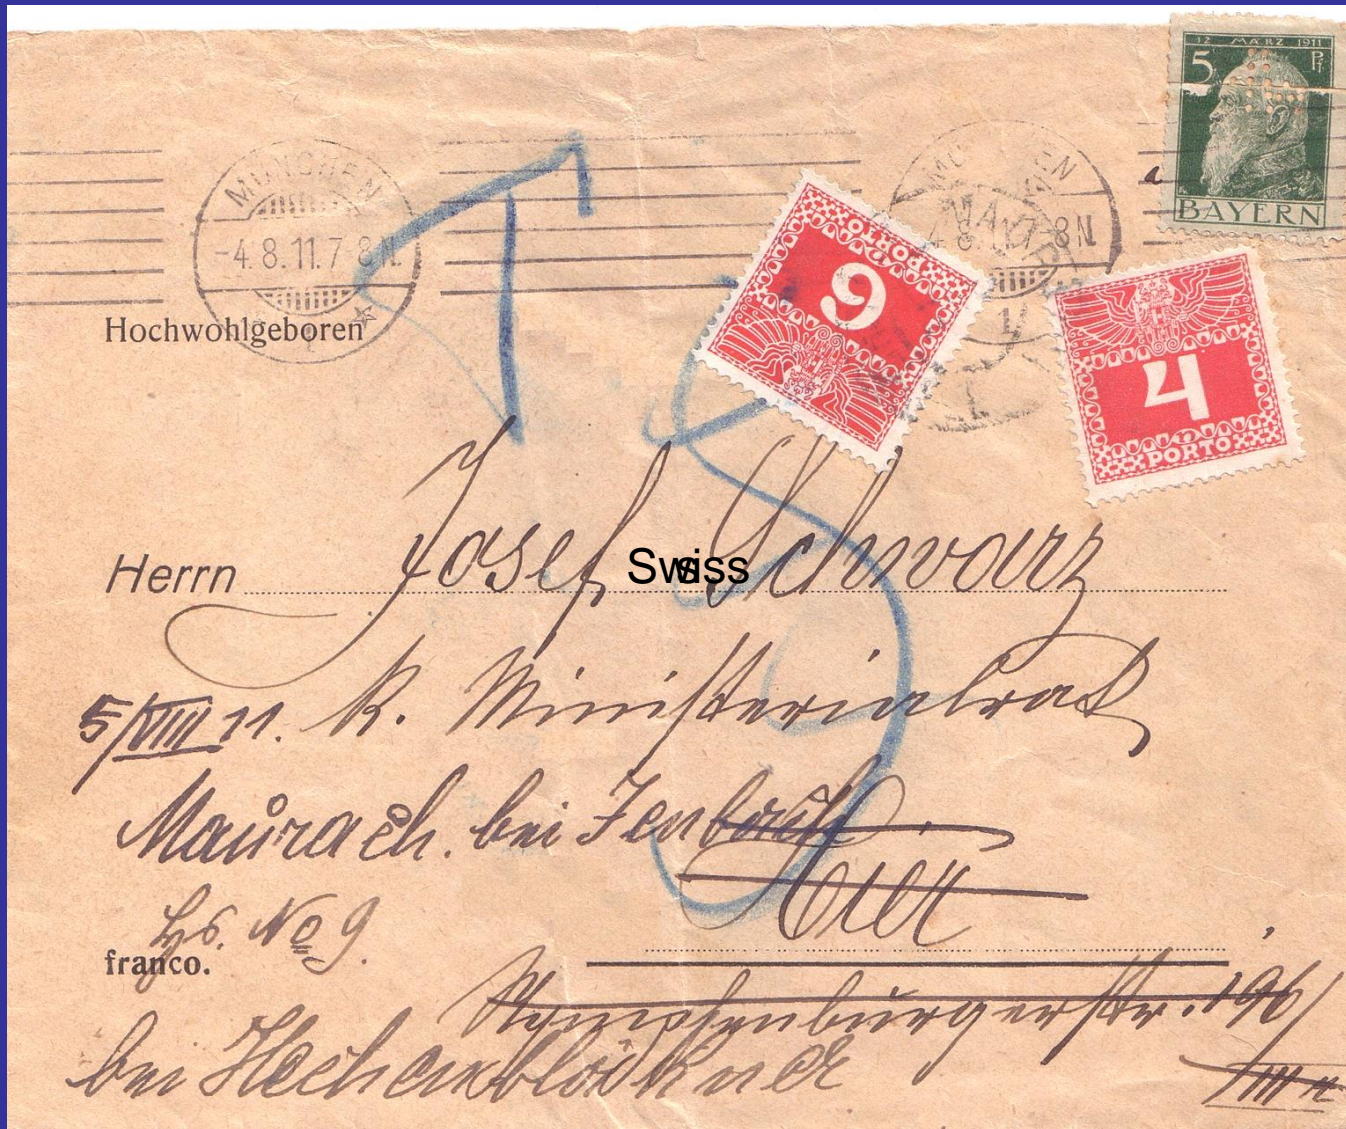 12 MÄRZ 1911
5 Pf
BAYERN
MÜNCHEN
-4.8.11.7-8N.
MÜNCHEN
PORTO
6
4
PORTO
T
Hochwohlgeboren
Herrn Josef Schwarz
Swiss
5/VIII 11. K. Ministerialrat
Maurach. bei Jenbach
Hier
Hs. No 9.
franco.
Nymphenburgerstr. 196/
bei Hechenblaikner